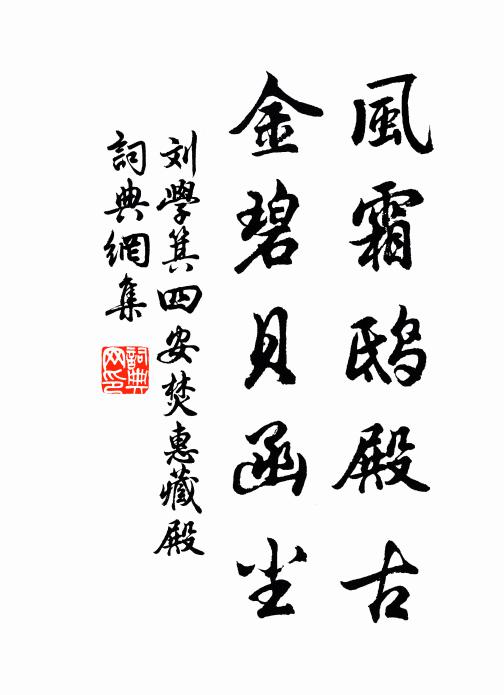 風霜鴟殿古
金碧貝函尘
刘學箕四安焚惠藏殿
詞典網集
詞典网印